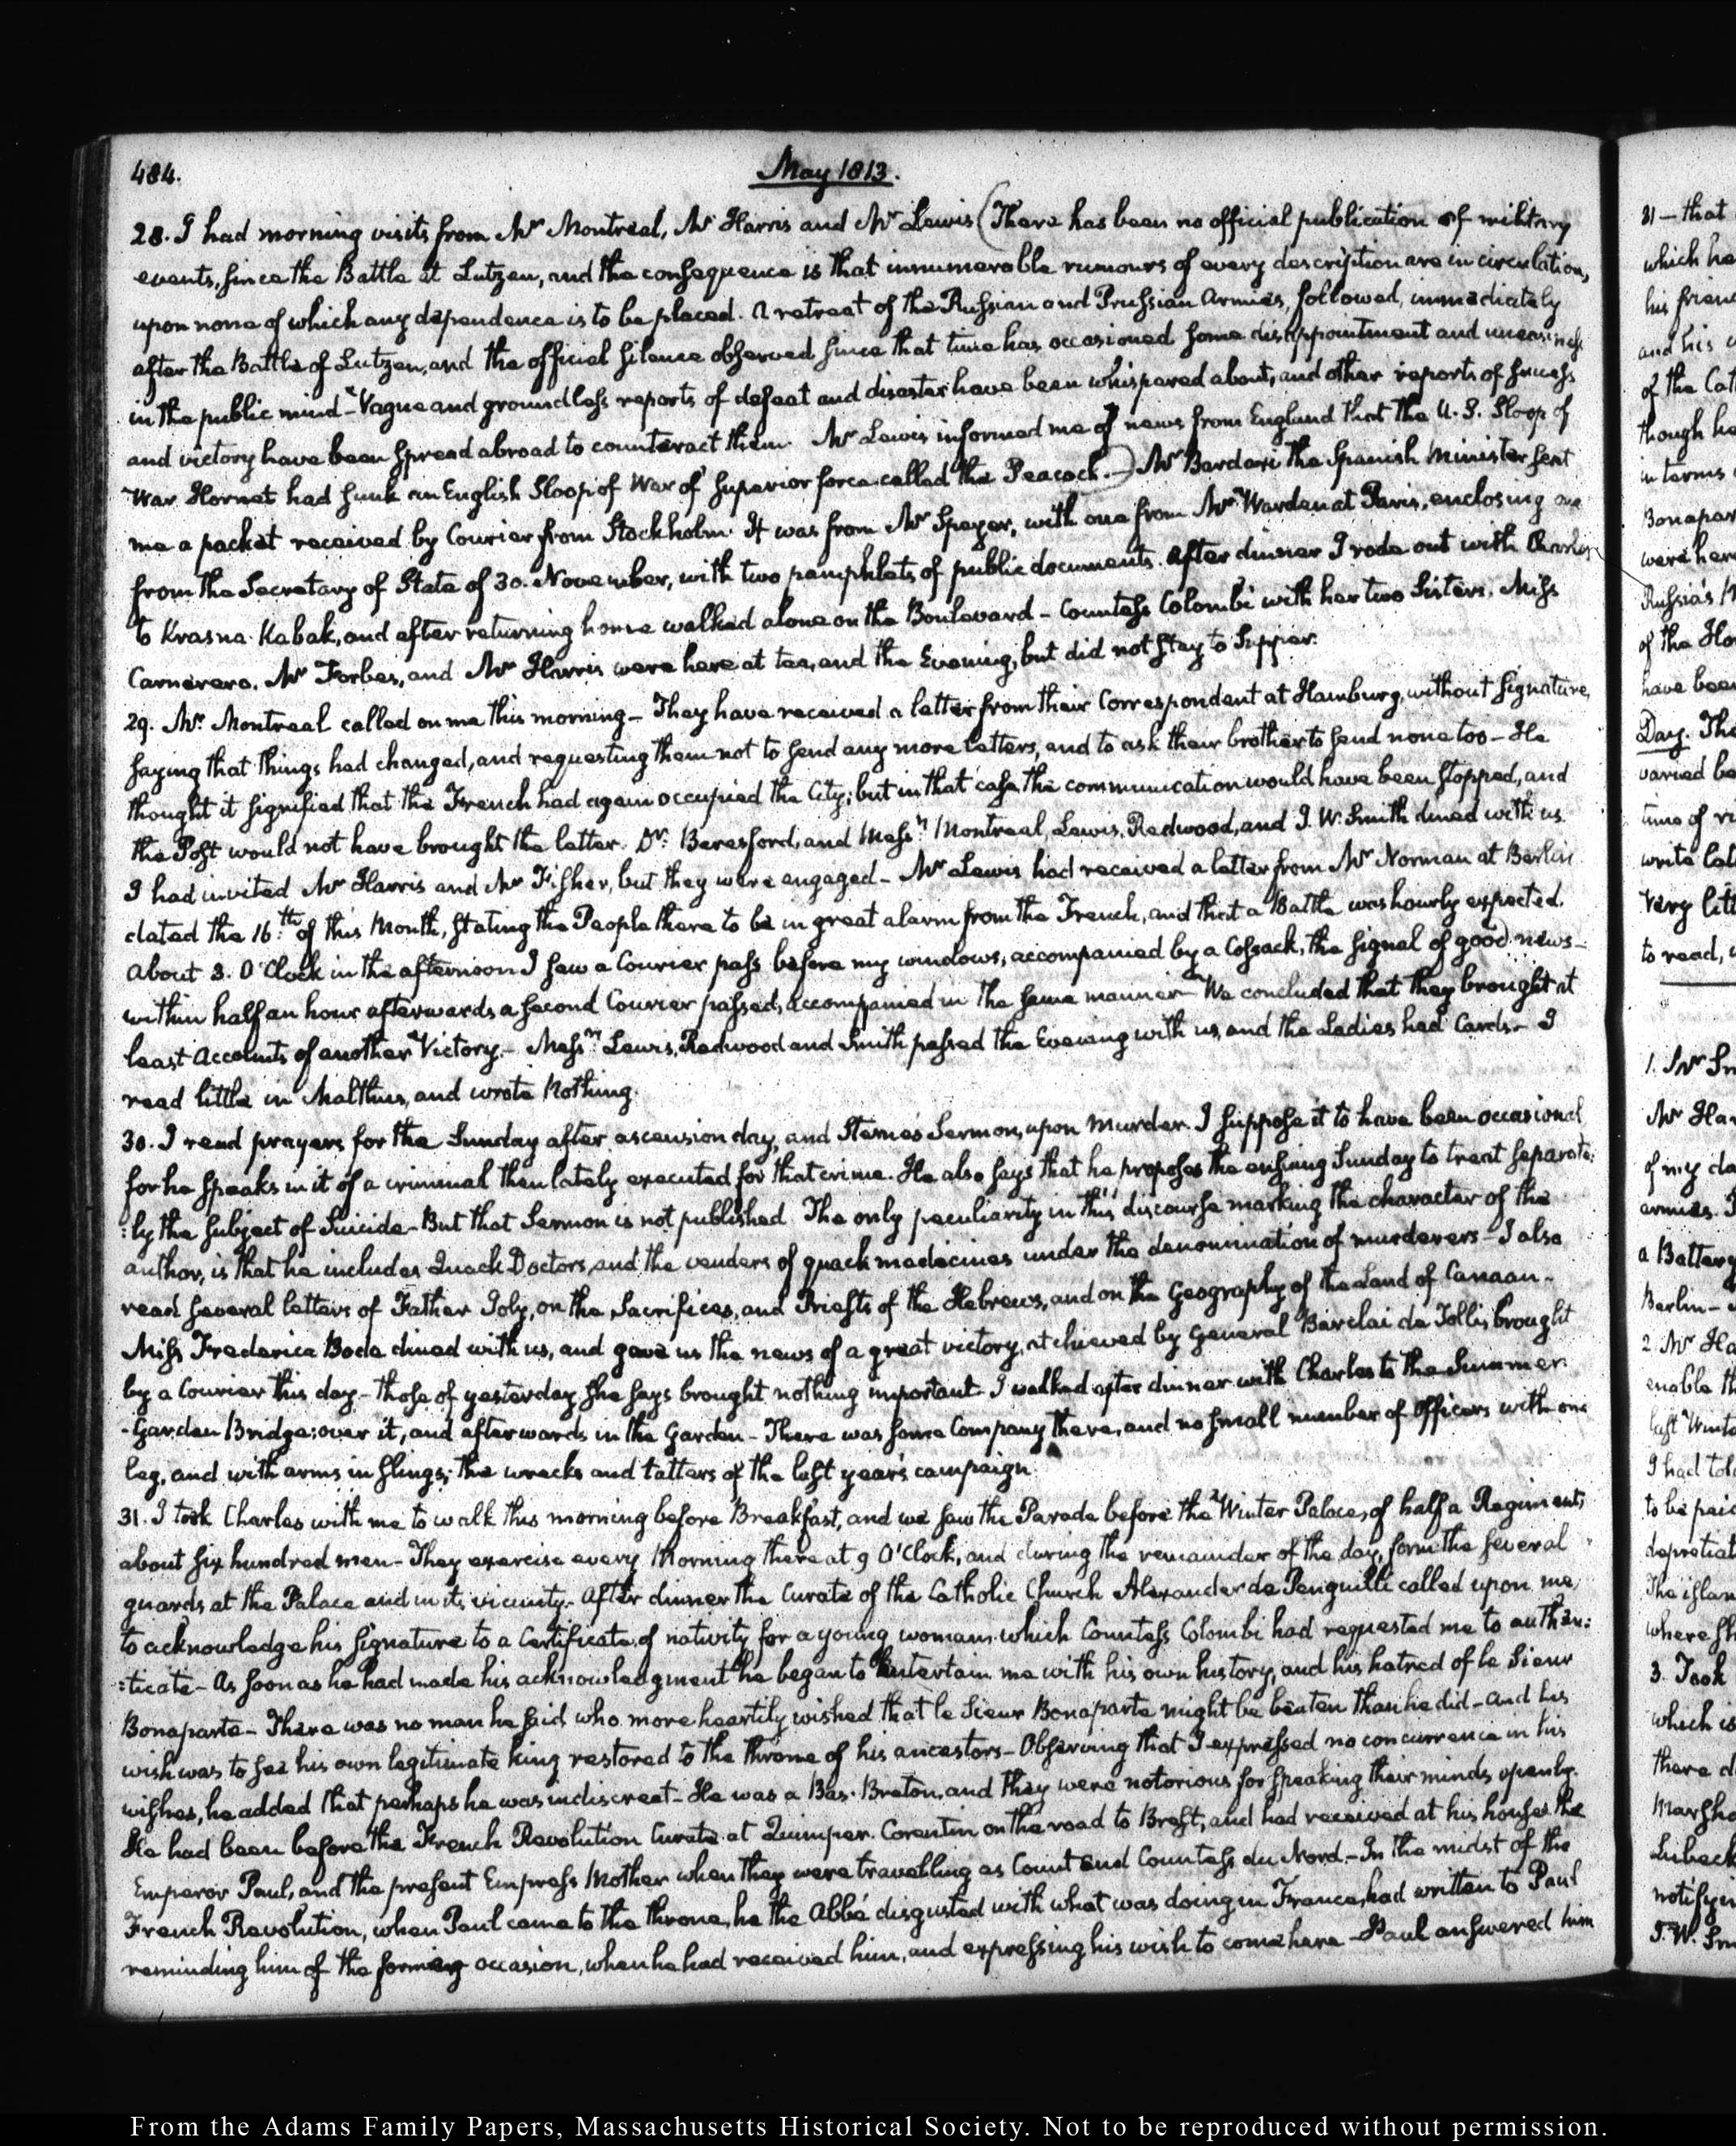 484.
May 1813.
28. I had morning visits from Mr Montréal, Mr Harris and Mr Lewis (There has been no official publication of military
events, since the Battle at Lutzen, and the consequence is that innumerable rumours of every description are in circulation,
upon none of which any dependence is to be placed. A retreat of the Russian and Prussian Armies, followed, immediately
after the Battle of Lutzen, and the official silence observed since that time has occasioned some disappointment and uneasiness
in the public mind—Vague and groundless reports of defeat and disaster have been whispered about, and other reports of success
and victory have been spread abroad to counteract them. Mr Lewis informed me of news from England that the U.S. Sloop of
War Hornet had sunk an English Sloop of War of superior force called the Peacock.—) Mr Bardaxi the Spanish Minister sent
me a packet received by Courier from Stockholm. It was from Mr Speyer, with one from Mr Warden at Paris, enclosing one
from the Secretary of State of 30. November, with two pamphlets of public documents. After dinner I rode out with Charles
to Krasna-Kabak, and after returning home walked alone on the Boulevard—Countess Colombi with her two Sisters, Miss
Carnevero, Mr Forbes, and Mr Harris were here at tea, and the Evening, but did not stay to Supper.
29. Mr. Montreal called on me this morning—They have received a letter from their Correspondent at Hamburg, without signature,
saying that things had changed, and requesting them not to send any more letters, and to ask their brother to send none too—He
thought it signified that the French had again occupied the City; but in that case the communication would have been stopped, and
the Post would not have brought the letter. Dr: Beresford, and Messrs Montreal, Lewis, Redwood, and J. W. Smith dined with us.
I had invited Mr Harris and Mr Fisher, but they were engaged—Mr Lewis had received a letter from Mr Norman at Berlin
dated the 16:th of this Month, stating the People there to be in great alarm from the French, and that a Battle was hourly expected.
About 3. O'Clock in the afternoon I saw a Courier pass before my windows, accompanied by a Cossack, the signal of good news—
within half an hour afterwards a second Courier passed, accompanied in the same manner—We concluded that they brought at
least Accounts of another Victory.—Messrs Lewis, Redwood and Smith passed the Evening with us, and the Ladies had Cards.—I
read little in Malthus, and wrote Nothing.
30. I read prayers for the Sunday after ascension day, and Sterne's Sermon, upon Murder. I suppose it to have been occasional
for he speaks in it of a criminal then lately executed for that crime. He also says that he proposes the ensuing Sunday to treat separate:
:ly the subject of Suicide—But that Sermon is not published. The only peculiarity in this discourse marking the character of the
author, is that he includes Quack Doctors, and the venders of quack medecines under the denomination of murderers—I also
read several letters of Father Joly, on the Sacrifices, and Priests of the Hebrews, and on the Geography of the Land of Canaan—
Miss Frederica Bode dined with us, and gave us the news of a great victory, atchieved by General Barclai de Tolli, brought
by a Courier this day—those of yesterday she says brought nothing important. I walked after dinner with Charles to the Summer
-Garden Bridge; over it, and afterwards in the Garden—There was some Company there, and no small number of Officers with one
leg, and with arms in slings; the wrecks and tatters of the last year's campaign.
31. I took Charles with me to walk this morning before Breakfast, and we saw the Parade before the Winter Palace, of half a Regiment,
about six hundred men—They exercise every Morning there at 9 O'Clock, and during the remainder of the day, form the several
guards at the Palace and in its vicinity.—After dinner the Curate of the Catholic Church Alexander de Penguilli called upon me,
to acknowledge his signature to a Certificate, of nativity for a young woman, which Countess Colombi had requested me to authen:
:ticate—As soon as he had made his acknowledgment he began to entertain me with his own history, and his hatred of le Sieur
Bonaparte—There was no man he said who more heartily wished that le Sieur Bonaparte might be beaten than he did—and his
wish was to see his own legitimate king restored to the throne of his ancestors—Observing that I expressed no concurrence in his
wishes, he added that perhaps he was indiscreet—He was a Bas-Breton, and they were notorious for speaking their minds openly.
He had been before the French Revolution Curate at Quimper-Corentin on the road to Brest, and had received at his house the
Emperor Paul, and the present Empress Mother when they were travelling as Count and Countess du Nord.—In the midst of the
French Revolution, when Paul came to the throne, he the Abbé disgusted with what was doing in France, had written to Paul
reminding him of the former occasion, when he had received him, and expressing his wish to come here—Paul answered him
31—that
which he
his frien
and his
of the Cat
though he
in terms
Bonapar
were her
Russia's
of the Ho
have been
Day. The
varied be
time of r
write let
very litt
to read,
1. Mr Sm
Mr Har
of my da
armies.
a Battery
Berlin—
2. Mr Ha
enable th
last Winte
I had tol
to be pai
depretiat
The islan
where sh
3. Took
which is
there d
Marsha
Lubeck
notifyin
J. W. Sm
From the Adams Family Papers, Massachusetts Historical Society. Not to be reproduced without permission.